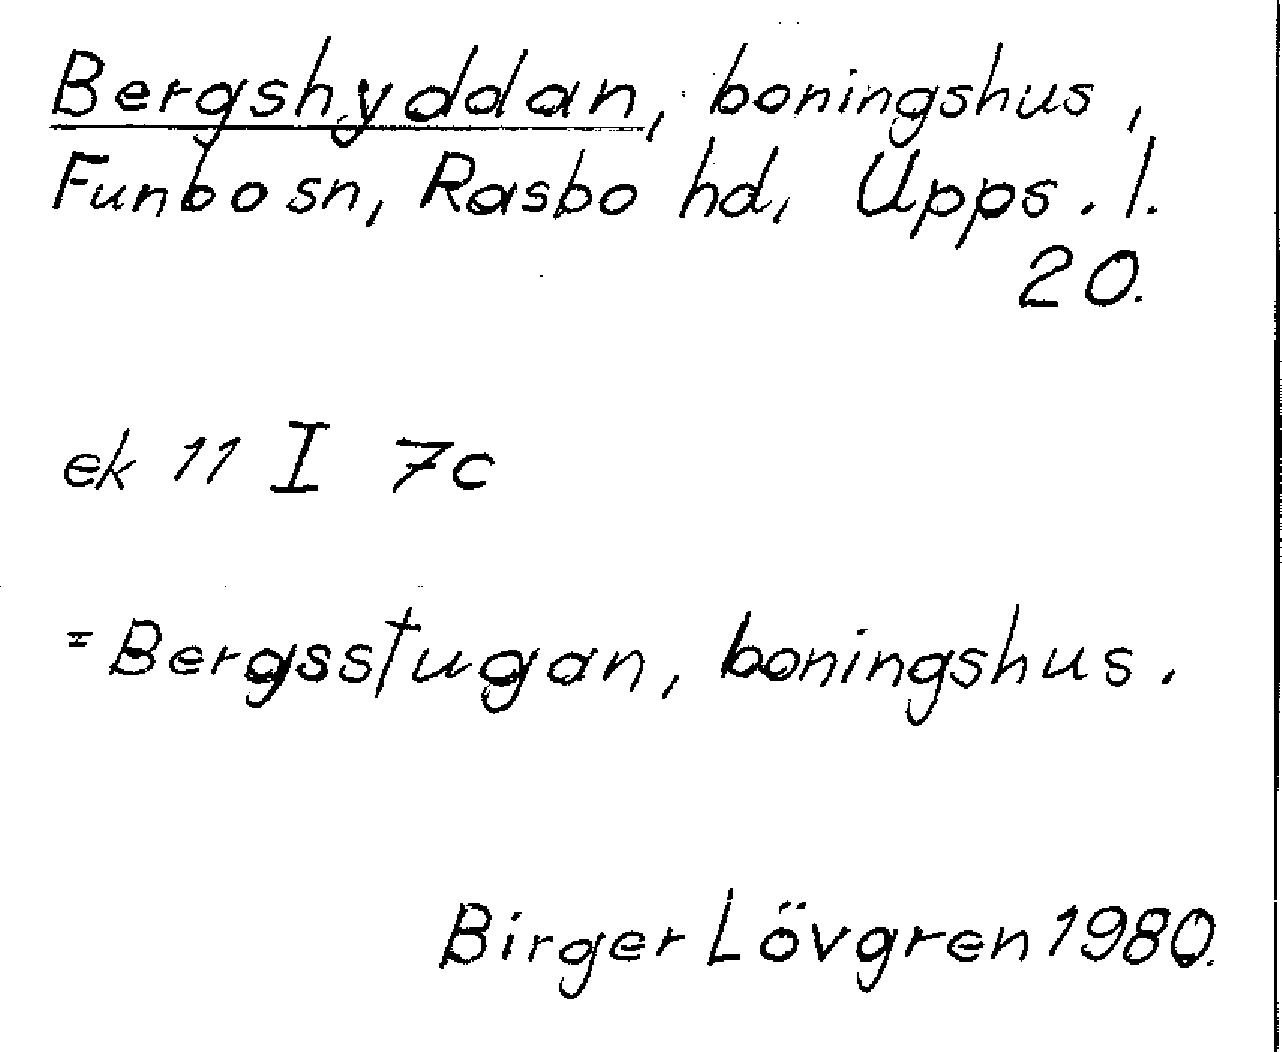 Bergshyddan, boningshus,
Funbo sn, Rasbo hd, Upps. l.
20.
ek 11 I 7c
= Bergsstugan, boningshus.
Birger Lövgren 1980.